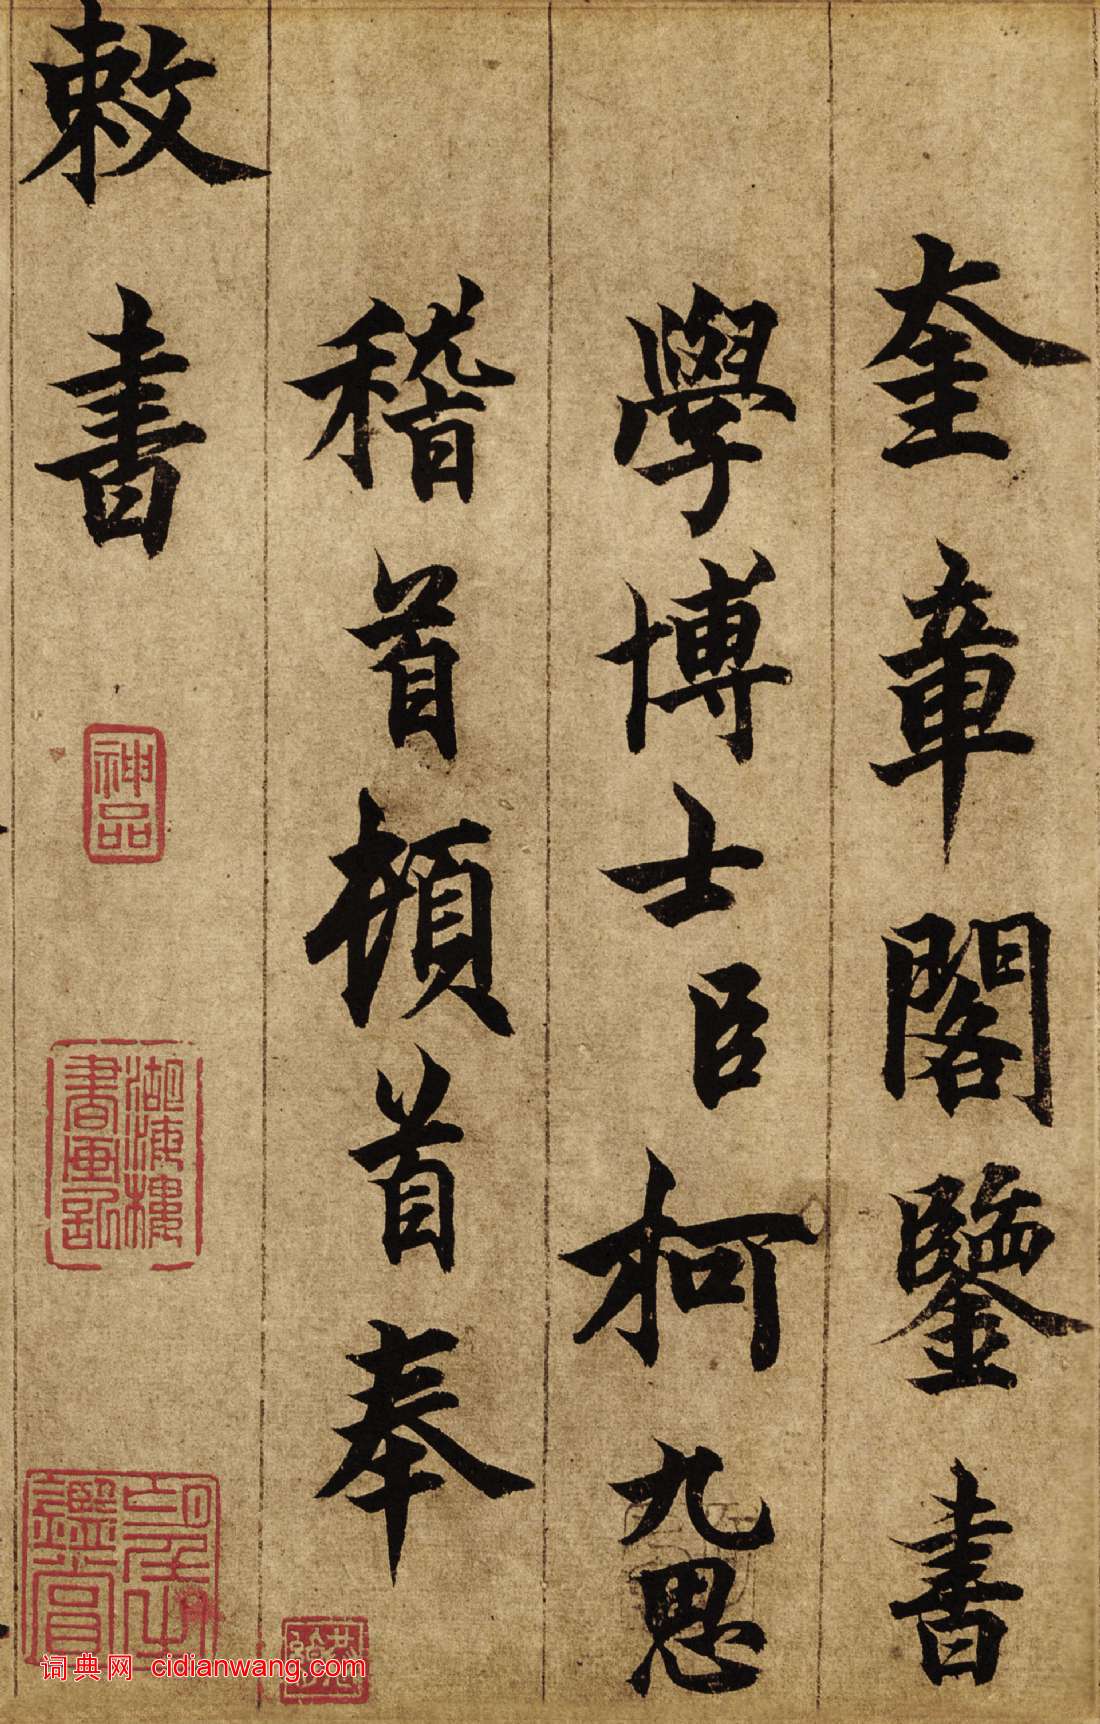 奎章閣鑒書
學博士臣柯九思
稽首頓首奉
敕書
神品
湖海樓
書畫記
鑑賞
词典网 cidianwang.com